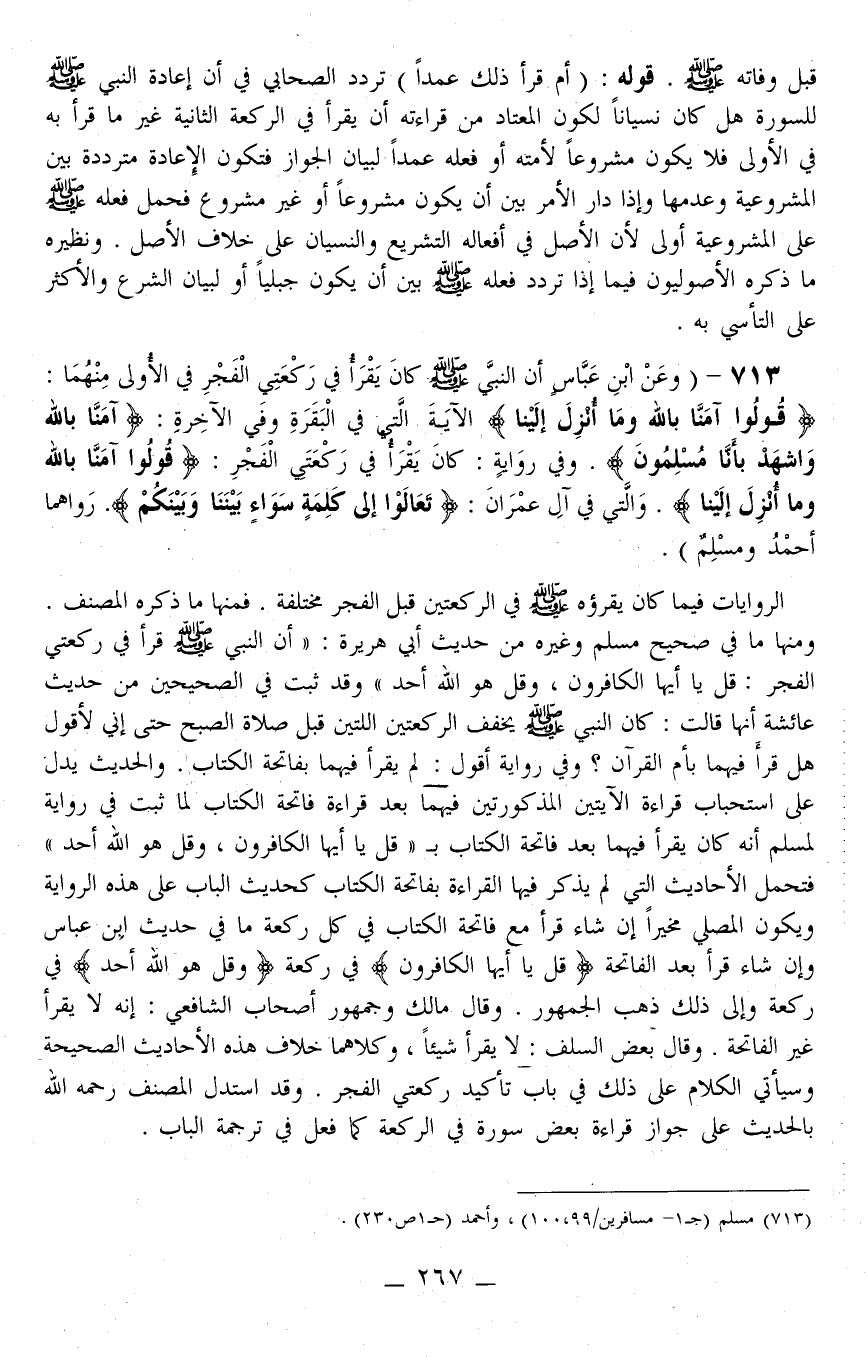 قبل وفاته ﷺ . قوله : ( أم قرأ ذلك عمداً ) تردد الصحابي في أن إعادة النبي ﷺ
للسورة هل كان نسياناً لكون المعتاد من قراءته أن يقرأ في الركعة الثانية غير ما قرأ به
في الأولى فلا يكون مشروعاً لأمته أو فعله عمداً لبيان الجواز فتكون الإِعادة مترددة بين
المشروعية وعدمها وإذا دار الأمر بين أن يكون مشروعاً أو غير مشروع فحمل فعله ﷺ
على المشروعية أولى لأن الأصل في أفعاله التشريع والنسيان على خلاف الأصل . ونظيره
ما ذكره الأصوليون فيما إذا تردد فعله ﷺ بين أن يكون جبلياً أو لبيان الشرع والأكثر
على التأسي به .
٧١٣ – ( وعَنْ ابْنِ عَبَّاسٍ أن النبيَّ ﷺ كانَ يَقْرَأُ في رَكْعَتِي الْفَجْرِ في الأُولى مِنْهُمَا :
﴿ قُـولُوا آمَنَّا بالله ومَا أُنْزِلَ إلَيْنا ﴾ الآيَـةَ الَّتِي في الْبَقَرَةِ وفي الآخِرةِ : ﴿ آمَنَّا بالله
وَاشهَدْ بأَنَّا مُسْلِمُونَ ﴾ . وفي روَايةٍ : كانَ يَقْرَأُ في رَكْعَتَي الْفَجْرِ : ﴿ قُولُوا آمَنَّا بالله
وما أُنْزِلَ إلَيْنا ﴾ . وَالَّتي في آلِ عمْرَانَ : ﴿ تَعَالَوْا إلى كَلِمَةٍ سَوَاءٍ بَيْنَنَا وَبَيْنَكُمْ ﴾. رَواهما
أحمْدُ ومسْلِمٌ ) .
الروايات فيما كان يقرؤه ﷺ في الركعتين قبل الفجر مختلفة . فمنها ما ذكره المصنف .
ومنها ما في صحيح مسلم وغيره من حديث أبي هريرة : « أن النبي ﷺ قرأ في ركعتي
الفجر : قل يا أيها الكافرون ، وقل هو الله أحد » وقد ثبت في الصحيحين من حديث
عائشة أنها قالت : كان النبي ﷺ يخفف الركعتين اللتين قبل صلاة الصبح حتى إني لأقول
هل قرأ فيهما بأم القرآن ؟ وفي رواية أقول : لم يقرأ فيهما بفاتحة الكتاب . والحديث يدل
على استحباب قراءة الآيتين المذكورتين فيهما بعد قراءة فاتحة الكتاب لما ثبت في رواية
لمسلم أنه كان يقرأ فيهما بعد فاتحة الكتاب بـ « قل يا أيها الكافرون ، وقل هو الله أحد »
فتحمل الأحاديث التي لم يذكر فيها القراءة بفاتحة الكتاب كحديث الباب على هذه الرواية
ويكون المصلي مخيراً إن شاء قرأ مع فاتحة الكتاب في كل ركعة ما في حديث ابن عباس
وإن شاء قرأ بعد الفاتحة ﴿ قل يا أيها الكافرون ﴾ في ركعة ﴿ وقل هو الله أحد ﴾ في
ركعة وإلى ذلك ذهب الجمهور . وقال مالك وجمهور أصحاب الشافعي : إنه لا يقرأ
غير الفاتحة . وقال بعض السلف : لا يقرأ شيئاً ، وكلاهما خلاف هذه الأحاديث الصحيحة
وسيأتي الكلام على ذلك في باب تأكيد ركعتي الفجر . وقد استدل المصنف رحمه الله
بالحديث على جواز قراءة بعض سورة في الركعة كما فعل في ترجمة الباب .
(٧١٣) مسلم (جـ١– مسافرين/١٠٠،٩٩) ، وأحمد (حـ١ص٢٣٠) .
– ٢٦٧ –